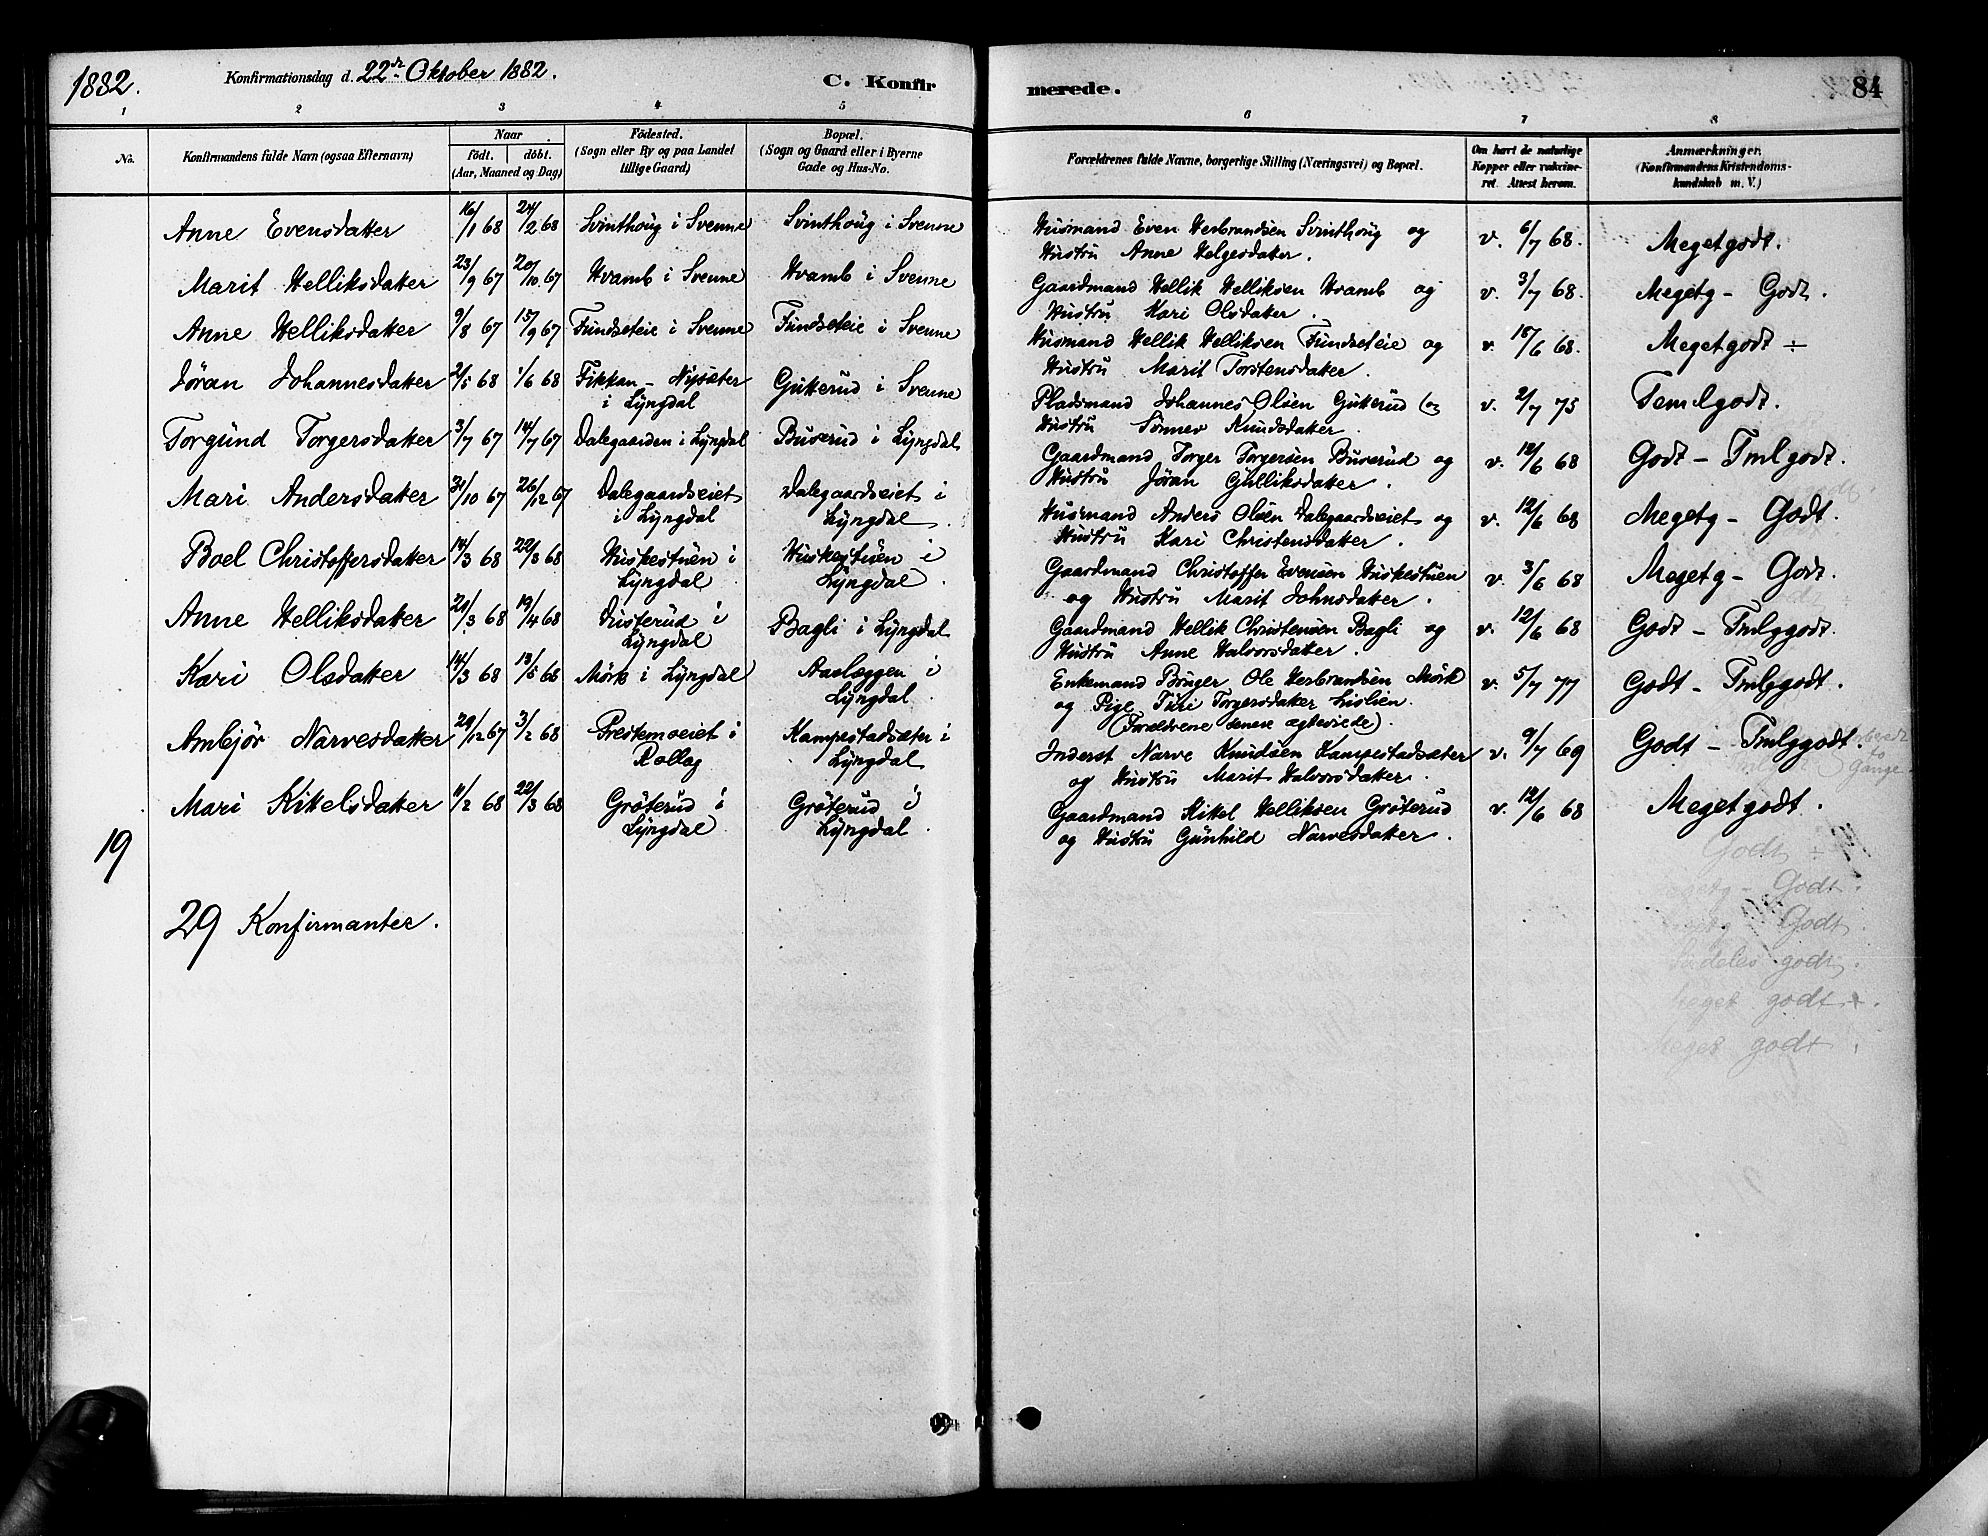 1882. Konfirmationsdag d. 22de Oktober 1882. C. Konfir
merede. 84
1 2 3 4 5 6 7 8
No.
Konfirmandens fulde Navn (ogsaa Efternavn)
Naar
födt. döbt.
(Aar, Maaned og Dag)
Födested.
(Sogn eller By og paa Landet
tillige Gaard)
Bopæl.
(Sogn og Gaard eller i Byerne
Gade og Hus-No.
Forældrenes fulde Navne, borgerlige Stilling (Næringsvei) og Bopæl.
Om havt de naturlige
Kopper eller vakcine-
ret. Attest herom.
Anmærkninger.
(Konfirmandens Kristendoms-
kundskab m. V.)
Anne Evensdatter 16/1 68 24/2 68 Svinthoug i Svenne Svinthoug i Svenne Husmand Even Herbrandsen Svinthoug og v. 6/7 68. Megetgodt.
Hustru Anne Helgesdatter.
Marit Helliksdatter 23/9 67 20/10 67 Hvamb i Svenne Hvamb i Svenne Gaardmand Hellik Helliksen Hvamb og v. 3/7 68. Megetg - Godt.
Hustru Kari Olsdatter.
Anne Helliksdatter 9/8 67 15/9 67 Fundseteie i Svenne Fundseteie i Svenne Husmand Hellik Helliksen Fundseteie og v. 18/6 68. Megetgodt ÷
Hustru Marit Torstensdatter.
Jöran Johannesdatter 2/5 68 1/6 68 Fikkan - Nysæter Gutterud i Svenne Pladsmand Johannes Olsen Gutterud og v. 2/7 75 Temlgodt.
i Lyngdal Hustru Sönnev Knudsdatter.
Torgund Torgersdatter 3/7 67 14/7 67 Dalegaarden i Lyngdal Buverud i Lyngdal Gaardmand Torger Torgersen Buverud og v. 12/6 68 Godt - Tmlgodt.
Hustru Jöran Gulliksdatter.
Mari Andersdatter 31/10 67 26/12 67 Dalegaardseiet Dalegaardseiet i Husmand Anders Olsen Dalegaardseiet og v. 12/6 68 Megetg - Godt.
i Lyngdal Lyngdal Hustru Kari Christensdatter.
Boel Christoffersdatter 14/3 68 22/3 68 Huskestuen i Huskestuen i Gaardmand Christoffer Evensen Huskestuen v. 3/6 68 Megetg - Godt.
Lyngdal Lyngdal. og Hustru Marit Johnsdatter.
Anne Helliksdatter 21/3 68 19/4 68 Disterud i Bagli i Lyngdal Gaardmand Hellik Christensen Bagli og v. 12/6 68 Godt - Tmlggodt.
Lyngdal Hustru Anne Halvorsdatter.
Kari Olsdatter 14/3 68 13/5 68 Mörk i Lyngdal Aaslæggen i Enkemand Bruger Ole Herbrandsen Mörk v. 5/7 77 Godt - Tmlggodt.
Lyngdal og Pige Turi Torgersdatter Lislien.
(Forældrene senere ægteviede).
Anbjör Narvesdatter 29/12 67 3/2 68 Prestemoeiet i Kampestadsæter i Inderst Narve Knudsen Kampestadsæter v. 9/7 69 Godt - Tmlggodt.
Rollag Lyngdal og Hustru Marit Halvorsdatter.
Mari Kittelsdatter 11/2 68 22/3 68 Gröterud i Gröterud i Gaardmand Kittel Helliksen Gröterud v. 12/6 68 Megetgodt.
Lyngdal Lyngdal. og Hustru Gunhild Narvesdatter.
19
29 Konfirmanter.